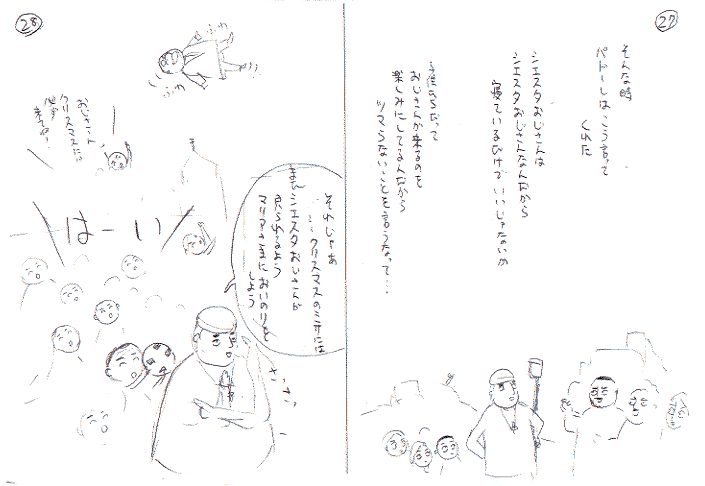 27
そんな時
パドーレはこう言って
くれた
シエスタおじさんは
シエスタおじさんなんだから
寝ているだけでいいじゃないか
子供たちだって
おじさんが来るのを
楽しみにしてるんだから
ツマらないことを言うなって…
28
それじゃあ
クリスマスのミサには
またシエスタおじさんが
見られるよう
マリアさまにおいのりを
しよう
さっ
はーい
おじさーん
クリスマスには
来てね!
ふわ
ふわ